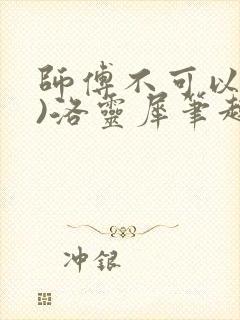 師傅不可以
)洛靈犀筆趣
冲銀